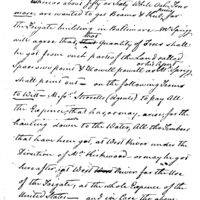 whereas about fifty or sixty White Oake Trees
more are wanted to get Beams & Keels, for
the Frigate building in Baltimore Mr Spriggs
will agree, that that Quantity of Trees shall
be got from such parts of the Land called
Sparrows point & as Mr Spriggs
shall point out — on the following Terms
to Wit — Messrs Sterretts (agents) to pay All
the Expence, that has, or may, arise for the
hauling down to the Water, All the Timbers
that have been got, at West River under the
Direction of Mr Kirkwood or may be got
hereafter, at West River for the Use
of the Frigate, at the whole Expence of the
United States — and in Case the above